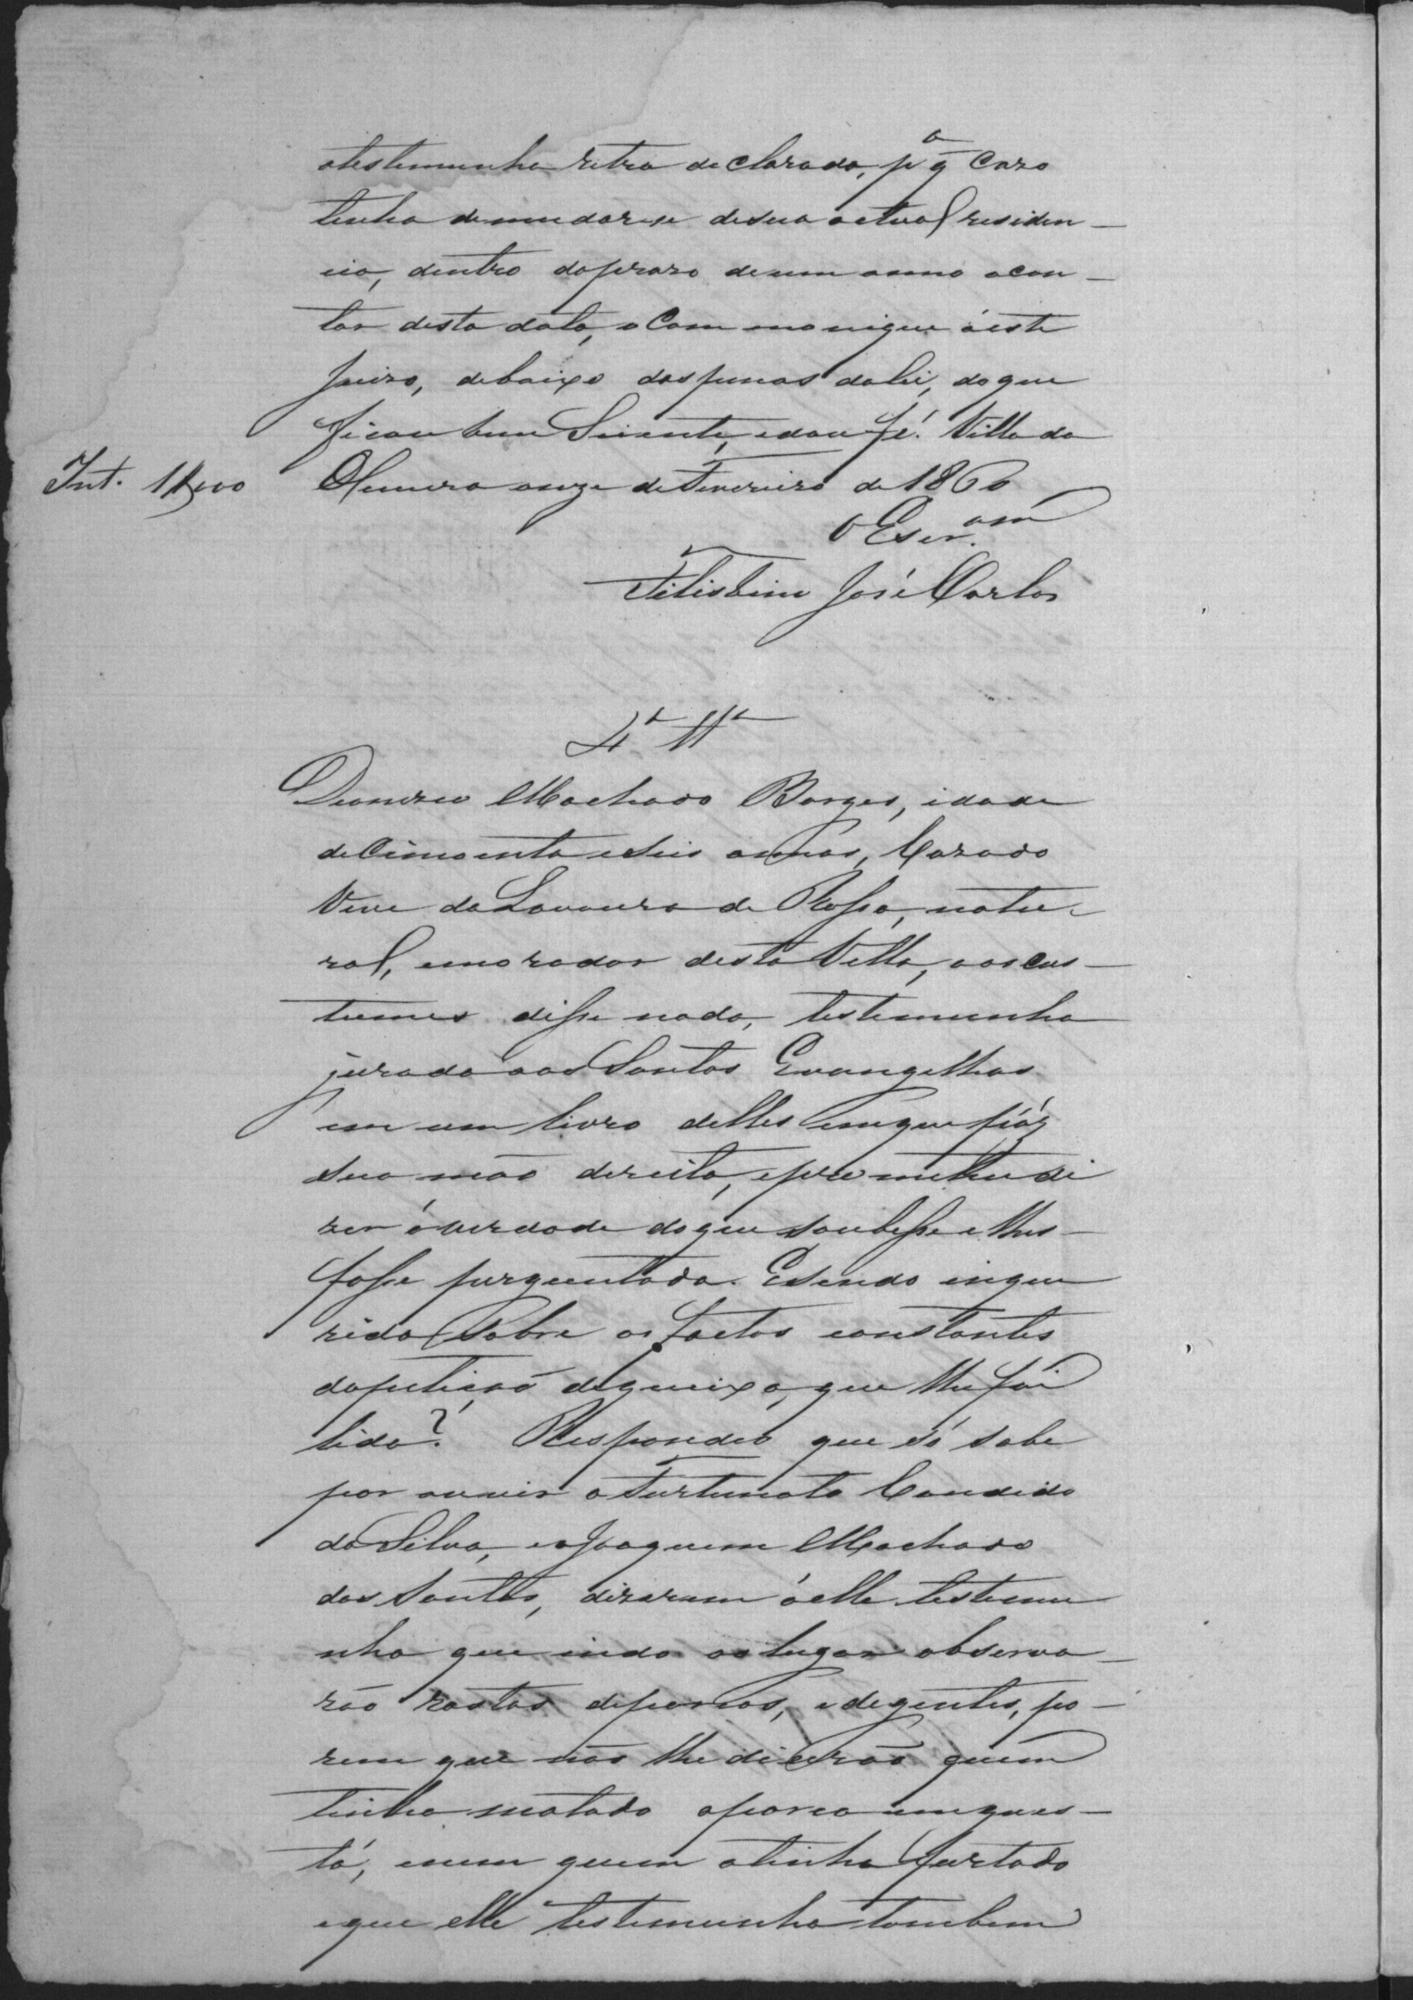 atestemunha retra declarada, pª q̃ Cazo
tenha demudarse desua actual residen-
cia, dentro doprazo deum anno acon-
tar desta data, oCommonique áeste
Juizo, debaixo daspenas dalei, doque
ficou bem Sciente, edou fé. Villa da
onze deFevereiro de 1860
Int.
O Escr.am
José Carlos
4ª Ttª
Machado Borges, idade
deCincoenta eseis annos, Cazado
Vive daLavoura de Rossa, natu-
ral, emorador desta Villa, aoscus-
tumes disse nada, testemunha
jurada aos Santos Evangelhos
em um livro delles emque pôz
sua mão direita, eprometteu di
zer averdade doque soubesse elhe
fosse perguntado. Esendo inque
rido Sobre os factos constantes
dapetição dequeixa, que lhe foi
lida? Respondeo que só sabe
por ouvir aFortunato Candido
daSilva, eaJoaquim Machado
dos Santos, dizerem áelle testemu
nha que indo aolugar observa-
rão rastos deporcos, edegentes, po-
rem que não lhe dicerão quem
tinha matado aporca emques-
tá, enem quem atinha furtado
eque elle testemunha tambem